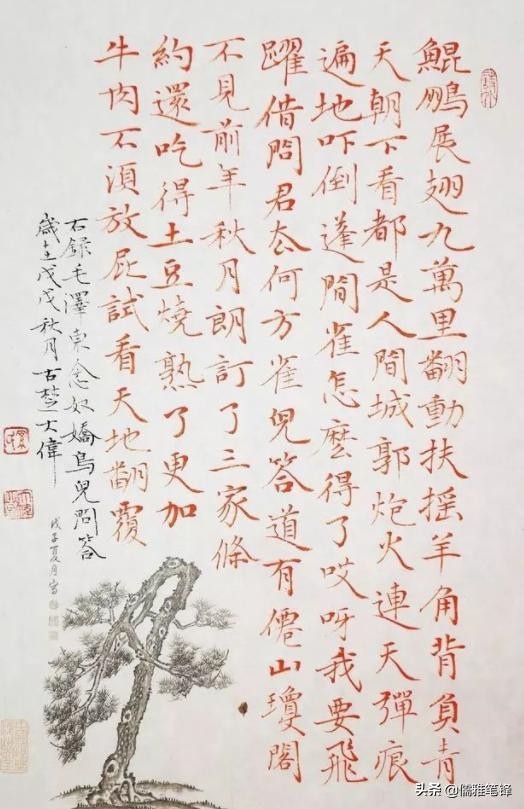 鯤鵬展翅九萬里翻動扶搖羊角背負青
天朝下看都是人間城郭炮火連天彈痕
遍地吓倒蓬間雀怎麼得了哎呀我要飛
躍借問君去何方雀兒答道有僊山瓊閣
不見前年秋月朗訂了三家條
約還吃得土豆燒熟了更加
牛肉不須放屁試看天地翻覆
右錄毛澤東念奴嬌鳥兒問答
歲在戊戌秋月古楚大偉
戊子夏月寫
头条 @儒雅笔锋